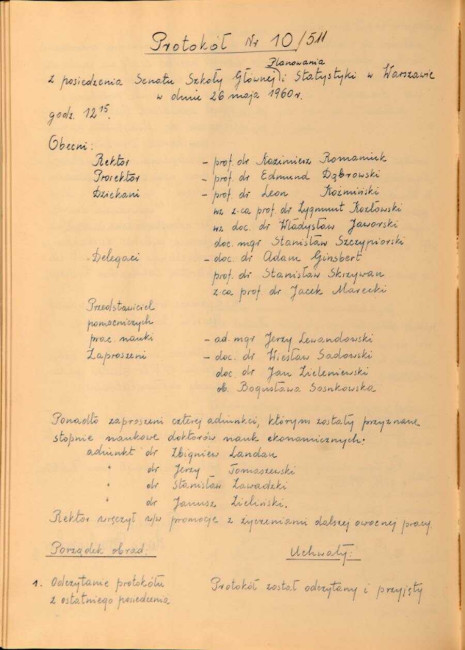 Protokół Nr 10/511
Planowania
z posiedzenia Senatu Szkoły Głównej i Statystyki w Warszawie
w dniu 26 maja 1960r.
godz. 12¹⁵.
Obecni:
Rektor – prof. dr Kazimierz Romaniuk
Prorektor – prof. dr Edmund Dąbrowski
Dziekani – prof. dr Leon Koźmiński
wz z-ca prof. dr Zygmunt Kozłowski
wz doc. dr Władysław Jaworski
doc. mgr Stanisław Szczypiorski
Delegaci – doc. dr Adam Ginsbert
prof. dr Stanisław Skrzywan
z-ca prof. dr Jacek Marecki
Przedstawiciel
pomocniczych
prac. nauki – ad. mgr Jerzy Lewandowski
Zaproszeni – doc. dr Wiesław Sadowski
doc. dr Jan Zieleniewski
ob. Bogusława Sosnkowska
Ponadto zaproszeni czterej adiunkci, którym zostały przyznane
stopnie naukowe doktorów nauk ekonomicznych.
adiunkt dr Zbigniew Landau
" dr Jerzy Tomaszewski
" dr Stanisław Zawadzki
" dr Janusz Zieliński.
Rektor wręczył w/w promocje z życzeniami dalszej owocnej pracy
Porządek obrad: Uchwały:
1. Odczytanie protokółu Protokół został odczytany i przyjęty
z ostatniego posiedzenia